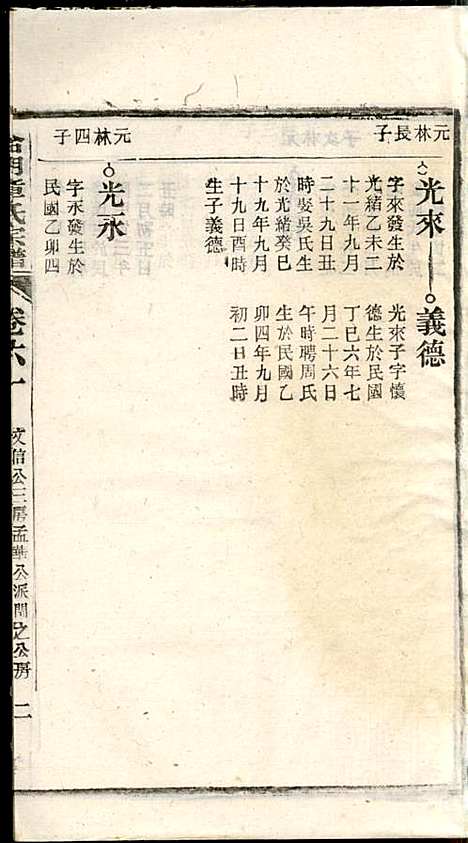 元林長子
光來
字來發生於
光緒乙未二
十一年九月
二十九日丑
時娶吳氏生
於光緒癸巳
十九年九月
十九日酉時
生子義德
義德
光來子字懷
德生於民國
丁巳六年七
月二十六日
午時聘周氏
生於民國乙
卯四年九月
初二日丑時
元林四子
光永
字永發生於
民國乙卯四
董氏宗譜
卷六十
文信公三房孟華公派閏之公房
二